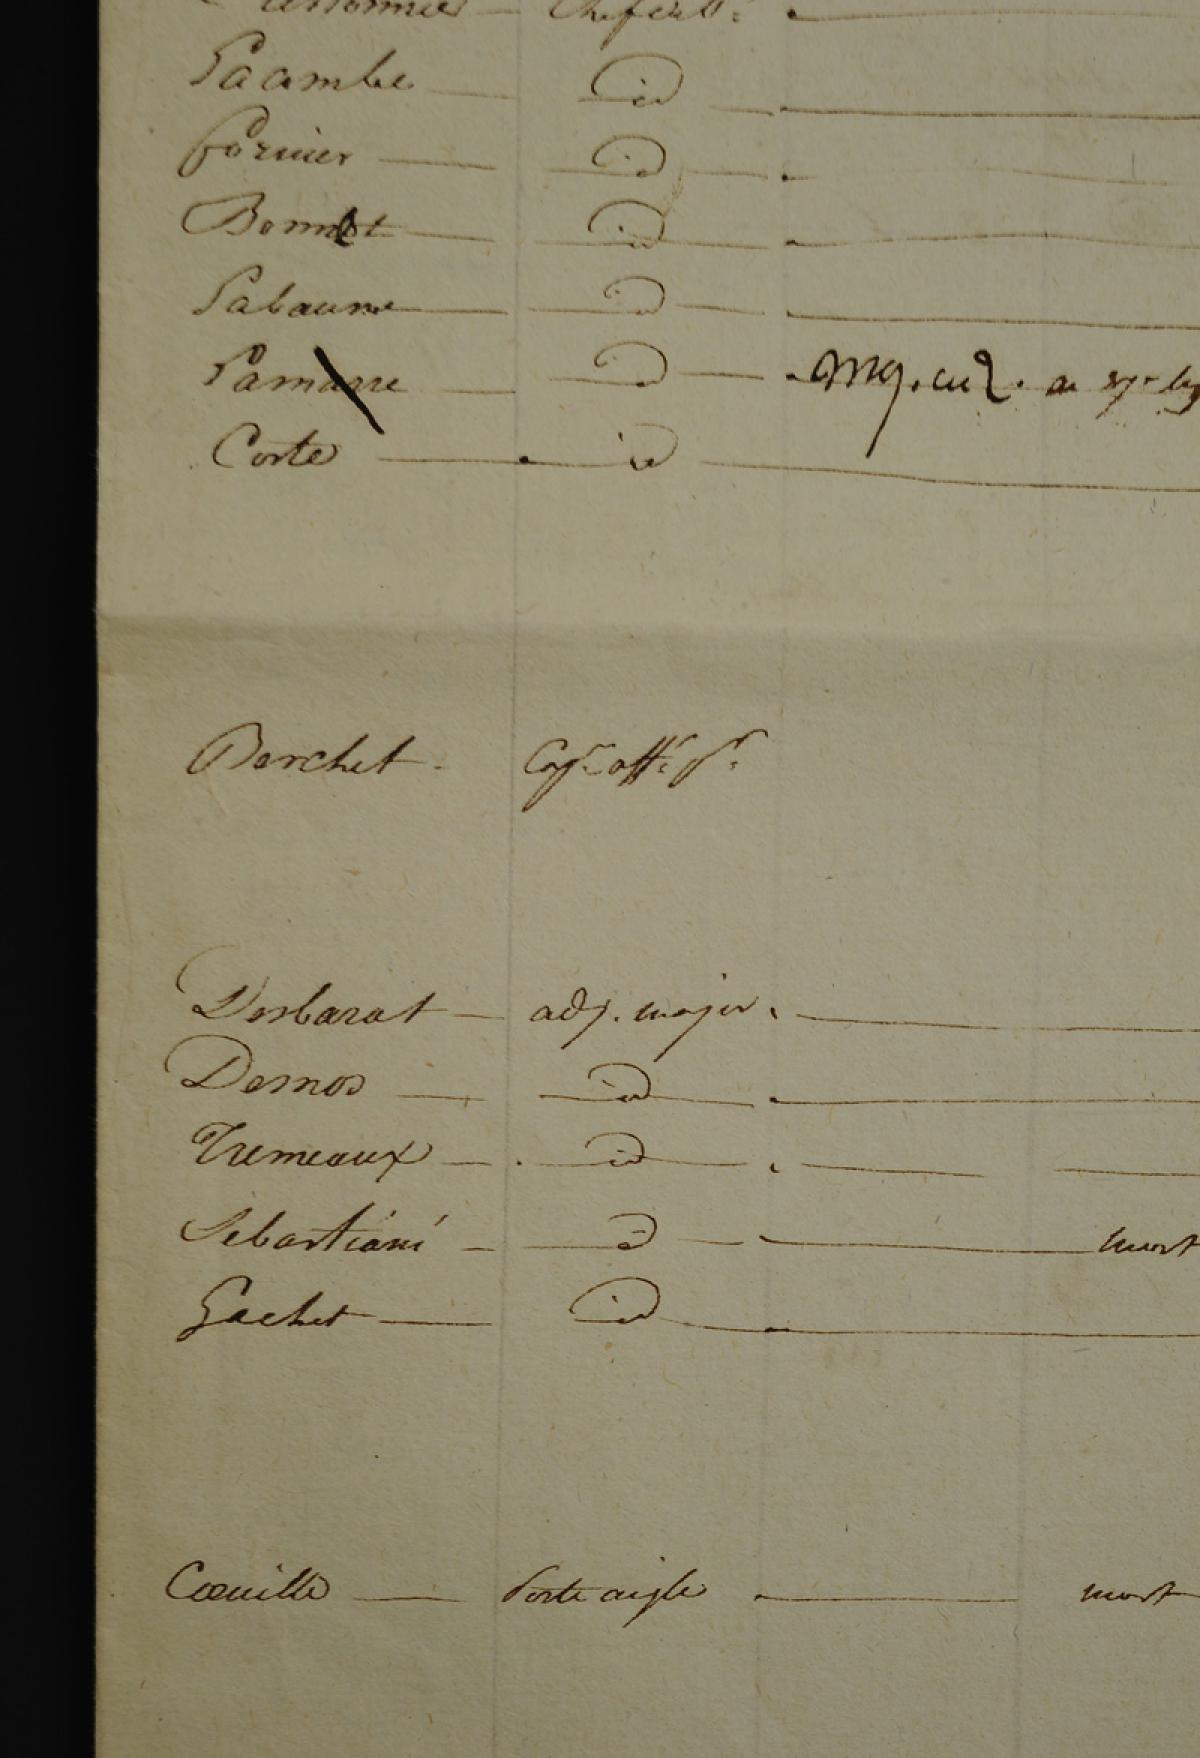 Lacombe — id —
Forinier — id — .
Bonnet — id — .
Labaume — id —
Lamarre — id — . Maj. en 2. au 37e leg
Corte — id —
Berchet - Cap.e off.r pr.
Desbarat — adj. major. —
Demos — id — .
Tremeaux — id — .
Sebastiani — id — mort
Gachet — id — .
Coeuille — Porte aigle — mort